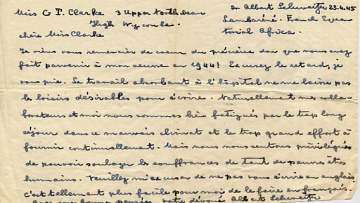 Miss C T. Clarke 3 Upper
High Wycombe
Dr Albert Schweitzer 23.4.45
Lambaréné. French Equa
torial Africa.
chère Miss Clarke
Je viens vous remercier de coeur du précieux don que vous avez
fait parvenir à mon oeuvre en 1944! Excusez le retard, je
vous prie. Le travail absorbant à l'hôpital ne me laisse pas
les loisirs désirables pour écrire. Naturellement mes colla-
borateurs et moi nous sommes très fatigués par le trop long
séjour dans ce mauvais climat et le trop grand effort à
fournir continuellement. Mais nous nous sentons privilégiés
de pouvoir soulager les souffrances de tant de pauvres êtres
humains. Veuillez m'excuser de ne pas vous écrire en anglais,
c'est tellement plus facile pour moi de le faire en français.
Avec mes bonnes pensées votre dévoué Albert Schweitzer